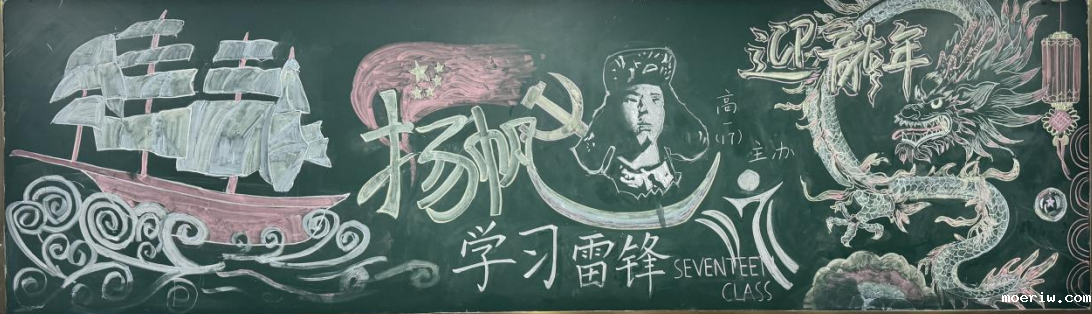 扬帆
学习雷锋
高一(17)
主办
SEVENTEEN
CLASS
迎龍年
moeriw.com